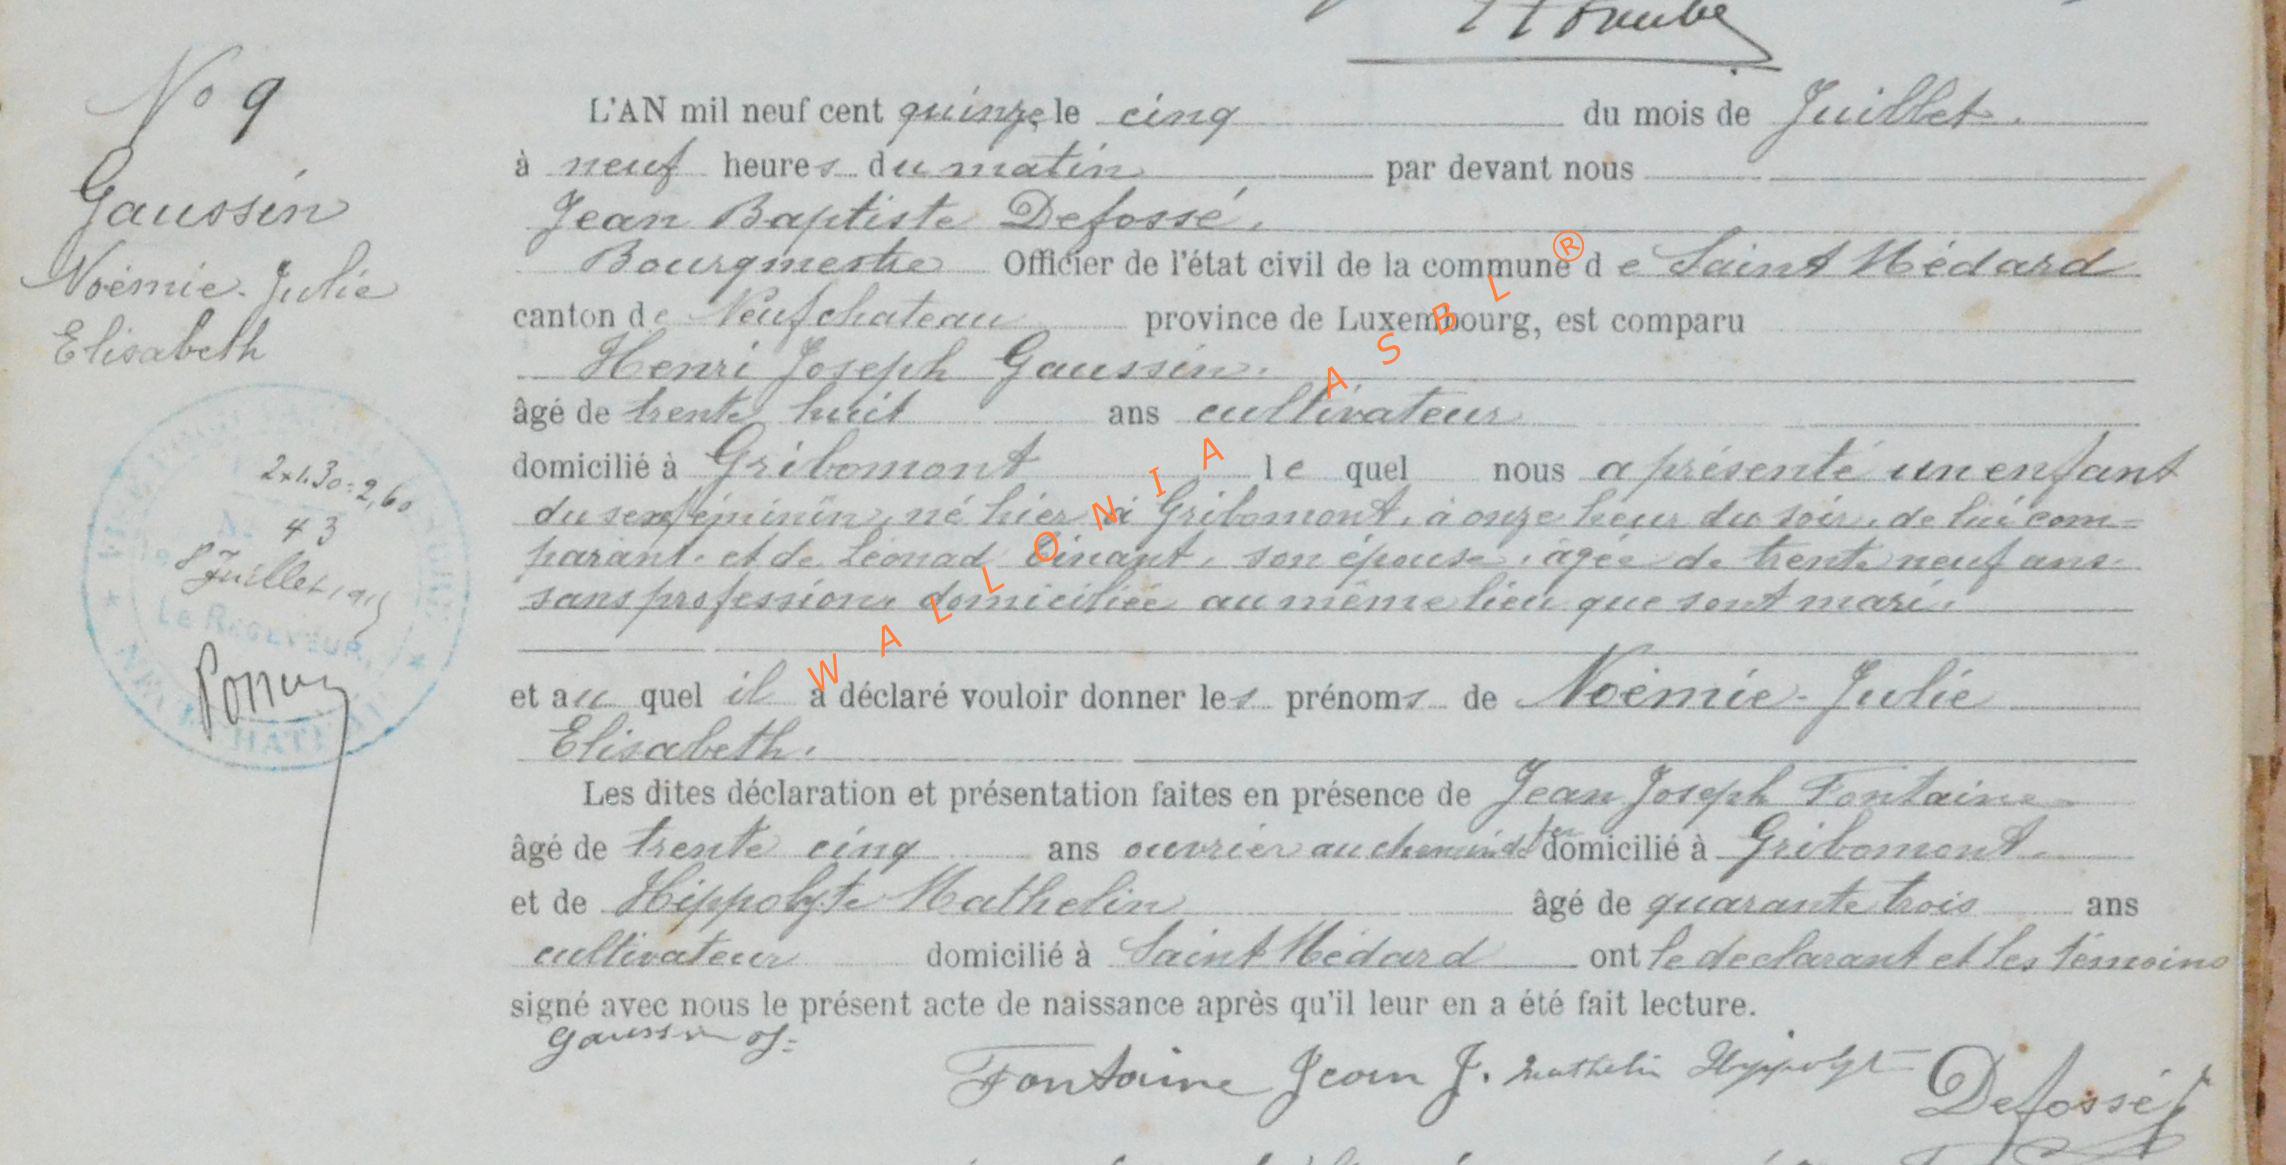 No 9
Gaussin
Noémie-Julie
Elisabeth
2x1.30=2,60
43
8 Juillet 1915
LE RECEVEUR,
L'AN mil neuf cent quinze le cinq du mois de Juillet.
à neuf heures du matin par devant nous
Jean Baptiste Defossé.
Bourgmestre Officier de l'état civil de la commune de Saint Médard
canton de Neufchateau province de Luxembourg, est comparu
Henri Joseph Gaussin.
âgé de trente huit ans cultivateur
domicilié à Gribomont le quel nous a présenté un enfant
du sexe féminin, né hier à Gribomont, à onze heur du soir, de lui com=
parant, et de Léonad Dinant, son épouse, âgée de trente neuf ans
sans profession domiciliée au même lieu que sont mari.
et au quel il a déclaré vouloir donner les prénoms de Noémie-Julie
Elisabeth.
Les dites déclaration et présentation faites en présence de Jean Joseph Fontaine
âgé de trente cinq ans ouvrier au chemin de fer domicilié à Gribomont.
et de Hippolyte Mathelin âgé de quarante trois ans
cultivateur domicilié à Saint Médard ont le declarant et les témoins
signé avec nous le présent acte de naissance après qu'il leur en a été fait lecture.
Gaussin
Fontaine Jean J. Mathelin Hyppolyt Defossé
WALLONIA ASBL®